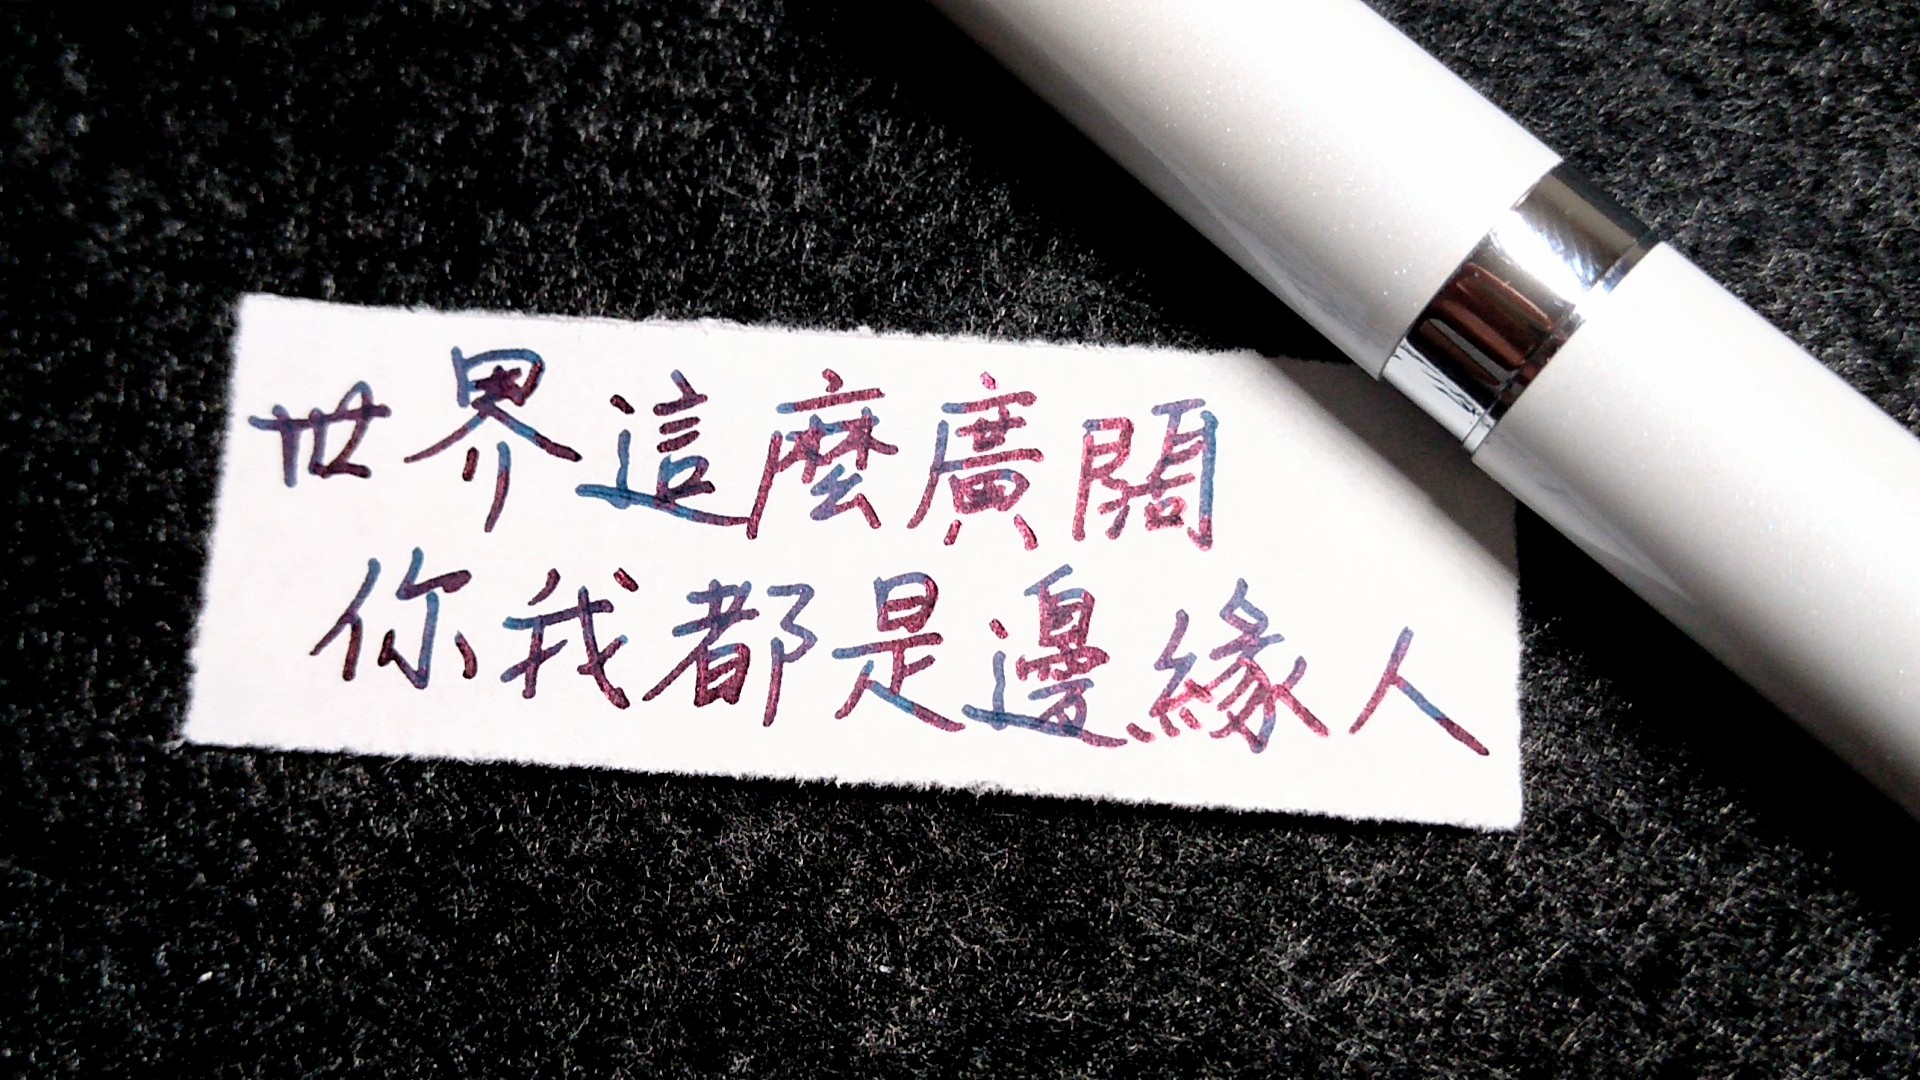 世界這麼廣闊
你我都是邊緣人